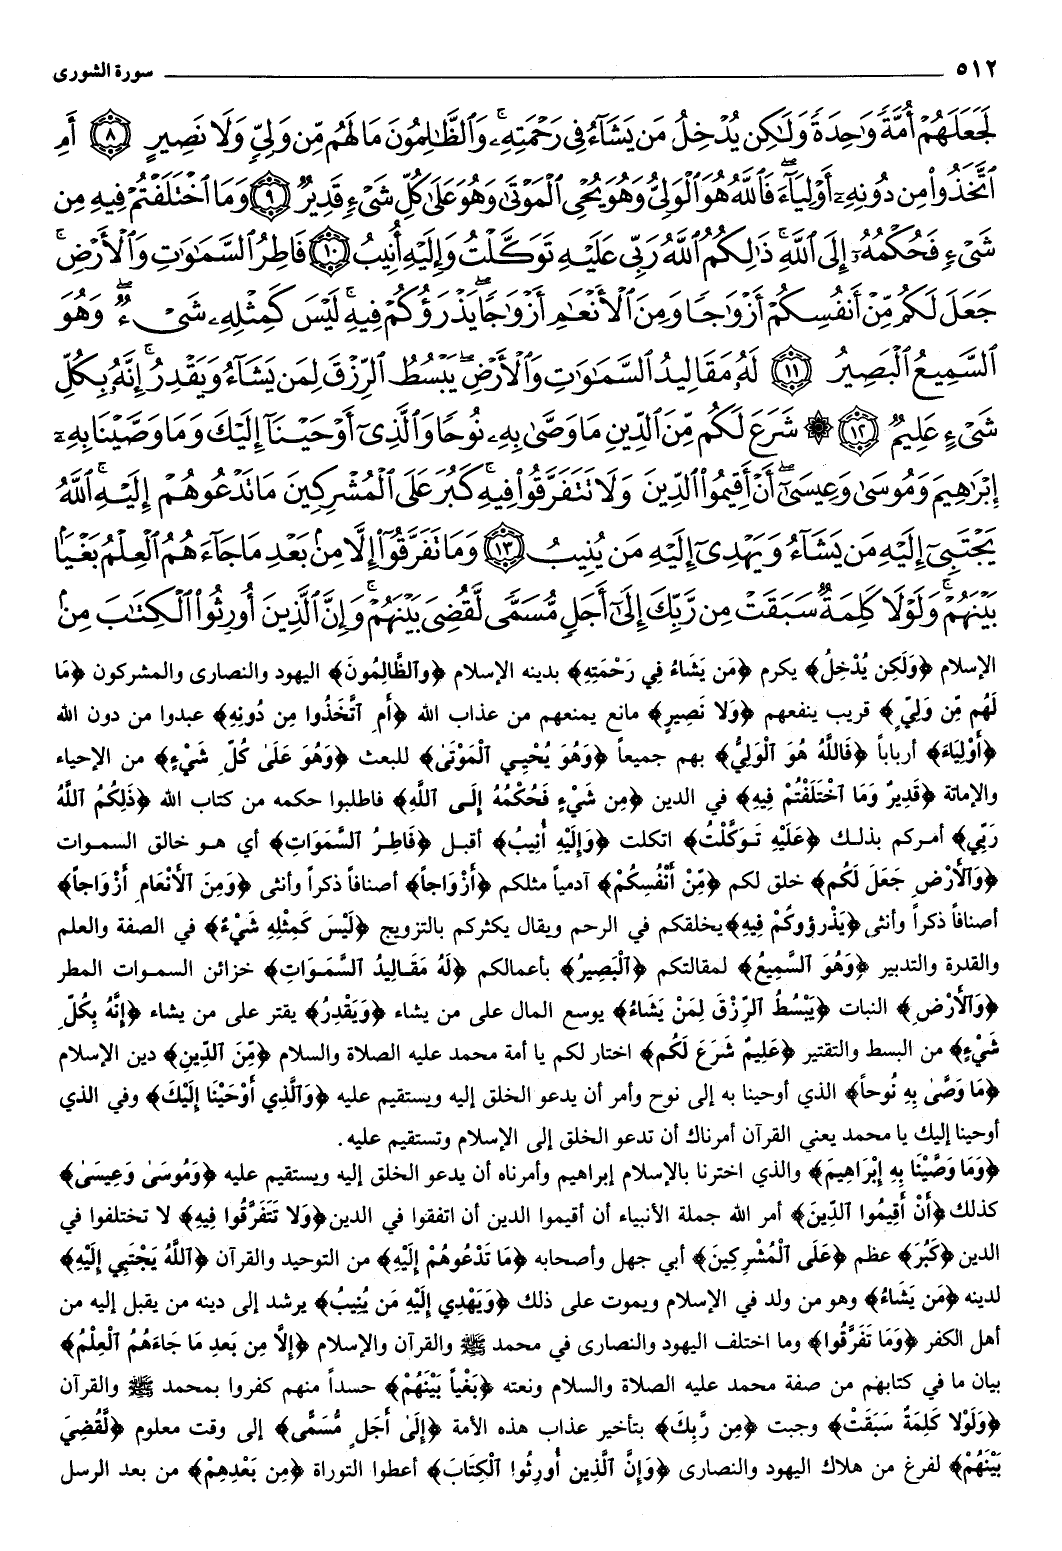 ٥١٢ سورة الشورى
لَجَعَلَهُمْ أُمَّةً وَاحِدَةً وَلَٰكِن يُدْخِلُ مَن يَشَآءُ فِى رَحْمَتِهِۦۚ وَٱلظَّٰلِمُونَ مَا لَهُم مِّن وَلِىٍّ وَلَا نَصِيرٍ ٨ أَمِ
ٱتَّخَذُوا۟ مِن دُونِهِۦٓ أَوْلِيَآءَۖ فَٱللَّهُ هُوَ ٱلْوَلِىُّ وَهُوَ يُحْىِ ٱلْمَوْتَىٰ وَهُوَ عَلَىٰ كُلِّ شَىْءٍ قَدِيرٌ ٩ وَمَا ٱخْتَلَفْتُمْ فِيهِ مِن
شَىْءٍ فَحُكْمُهُۥٓ إِلَى ٱللَّهِۚ ذَٰلِكُمُ ٱللَّهُ رَبِّى عَلَيْهِ تَوَكَّلْتُ وَإِلَيْهِ أُنِيبُ ١٠ فَاطِرُ ٱلسَّمَٰوَٰتِ وَٱلْأَرْضِۚ
جَعَلَ لَكُم مِّنْ أَنفُسِكُمْ أَزْوَٰجًا وَمِنَ ٱلْأَنْعَٰمِ أَزْوَٰجًاۖ يَذْرَؤُكُمْ فِيهِۚ لَيْسَ كَمِثْلِهِۦ شَىْءٌۖ وَهُوَ
ٱلسَّمِيعُ ٱلْبَصِيرُ ١١ لَهُۥ مَقَالِيدُ ٱلسَّمَٰوَٰتِ وَٱلْأَرْضِۖ يَبْسُطُ ٱلرِّزْقَ لِمَن يَشَآءُ وَيَقْدِرُۚ إِنَّهُۥ بِكُلِّ
شَىْءٍ عَلِيمٌ ١٢ ۞ شَرَعَ لَكُم مِّنَ ٱلدِّينِ مَا وَصَّىٰ بِهِۦ نُوحًا وَٱلَّذِىٓ أَوْحَيْنَآ إِلَيْكَ وَمَا وَصَّيْنَا بِهِۦٓ
إِبْرَٰهِيمَ وَمُوسَىٰ وَعِيسَىٰٓۖ أَنْ أَقِيمُوا۟ ٱلدِّينَ وَلَا تَتَفَرَّقُوا۟ فِيهِۚ كَبُرَ عَلَى ٱلْمُشْرِكِينَ مَا تَدْعُوهُمْ إِلَيْهِۚ ٱللَّهُ
يَجْتَبِىٓ إِلَيْهِ مَن يَشَآءُ وَيَهْدِىٓ إِلَيْهِ مَن يُنِيبُ ١٣ وَمَا تَفَرَّقُوٓا۟ إِلَّا مِنۢ بَعْدِ مَا جَآءَهُمُ ٱلْعِلْمُ بَغْيًۢا
بَيْنَهُمْۚ وَلَوْلَا كَلِمَةٌ سَبَقَتْ مِن رَّبِّكَ إِلَىٰٓ أَجَلٍ مُّسَمًّى لَّقُضِىَ بَيْنَهُمْۚ وَإِنَّ ٱلَّذِينَ أُورِثُوا۟ ٱلْكِتَٰبَ مِنۢ
الإسلام ﴿وَلَكِن يُدْخِلُ﴾ يكرم ﴿مَن يَشَاءُ فِي رَحْمَتِهِ﴾ بدينه الإسلام ﴿وَٱلظَّالِمُونَ﴾ اليهود والنصارى والمشركون ﴿مَا
لَهُم مِّن وَلِيٍّ﴾ قريب ينفعهم ﴿وَلَا نَصِيرٍ﴾ مانع يمنعهم من عذاب الله ﴿أَمِ ٱتَّخَذُوا مِن دُونِهِ﴾ عبدوا من دون الله
﴿أَوْلِيَاءَ﴾ أرباباً ﴿فَاللَّهُ هُوَ ٱلْوَلِيُّ﴾ بهم جميعاً ﴿وَهُوَ يُحْيِي ٱلْمَوْتَىٰ﴾ للبعث ﴿وَهُوَ عَلَىٰ كُلِّ شَيْءٍ﴾ من الإحياء
والإماتة ﴿قَدِيرٌ وَمَا ٱخْتَلَفْتُمْ فِيهِ﴾ في الدين ﴿مِن شَيْءٍ فَحُكْمُهُ إِلَى اللَّهِ﴾ فاطلبوا حكمه من كتاب الله ﴿ذَلِكُمُ ٱللَّهُ
رَبِّي﴾ أمركم بذلك ﴿عَلَيْهِ تَوَكَّلْتُ﴾ اتكلت ﴿وَإِلَيْهِ أُنِيبُ﴾ أقبل ﴿فَاطِرُ ٱلسَّمَوَاتِ﴾ أي هو خالق السموات
﴿وَٱلْأَرْضِ جَعَلَ لَكُم﴾ خلق لكم ﴿مِّنْ أَنْفُسِكُمْ﴾ آدمياً مثلكم ﴿أَزْوَاجاً﴾ أصنافاً ذكراً وأنثى ﴿وَمِنَ ٱلْأَنْعَامِ أَزْوَاجاً﴾
أصنافاً ذكراً وأنثى ﴿يَذْرَؤُوكُمْ فِيهِ﴾ يخلقكم في الرحم ويقال يكثركم بالتزويج ﴿لَيْسَ كَمِثْلِهِ شَيْءٌ﴾ في الصفة والعلم
والقدرة والتدبير ﴿وَهُوَ السَّمِيعُ﴾ لمقالتكم ﴿ٱلْبَصِيرُ﴾ بأعمالكم ﴿لَهُ مَقَالِيدُ السَّمَوَاتِ﴾ خزائن السموات المطر
﴿وَٱلْأَرْضِ﴾ النبات ﴿يَبْسُطُ ٱلرِّزْقَ لِمَنْ يَشَاءُ﴾ يوسع المال على من يشاء ﴿وَيَقْدِرُ﴾ يقتر على من يشاء ﴿إِنَّهُ بِكُلِّ
شَيْءٍ﴾ من البسط والتقتير ﴿عَلِيمٌ شَرَعَ لَكُم﴾ اختار لكم يا أمة محمد عليه الصلاة والسلام ﴿مِّنَ ٱلدِّينِ﴾ دين الإسلام
﴿مَا وَصَّىٰ بِهِ نُوحاً﴾ الذي أوحينا به إلى نوح وأمر أن يدعو الخلق إليه ويستقيم عليه ﴿وَٱلَّذِي أَوْحَيْنَا إِلَيْكَ﴾ وفي الذي
أوحينا إليك يا محمد يعني القرآن أمرناك أن تدعو الخلق إلى الإسلام وتستقيم عليه.
﴿وَمَا وَصَّيْنَا بِهِ إِبْرَاهِيمَ﴾ والذي اخترنا بالإسلام إبراهيم وأمرناه أن يدعو الخلق إليه ويستقيم عليه ﴿وَمُوسَىٰ وَعِيسَىٰ﴾
كذلك ﴿أَنْ أَقِيمُوا ٱلدِّينَ﴾ أمر الله جملة الأنبياء أن أقيموا الدين أن اتفقوا في الدين ﴿وَلَا تَتَفَرَّقُوا فِيهِ﴾ لا تختلفوا في
الدين ﴿كَبُرَ﴾ عظم ﴿عَلَى ٱلْمُشْرِكِينَ﴾ أبي جهل وأصحابه ﴿مَا تَدْعُوهُمْ إِلَيْهِ﴾ من التوحيد والقرآن ﴿اللَّهُ يَجْتَبِي إِلَيْهِ﴾
لدينه ﴿مَن يَشَاءُ﴾ وهو من ولد في الإسلام ويموت على ذلك ﴿وَيَهْدِي إِلَيْهِ مَن يُنِيبُ﴾ يرشد إلى دينه من يقبل إليه من
أهل الكفر ﴿وَمَا تَفَرَّقُوا﴾ وما اختلف اليهود والنصارى في محمد ﷺ والقرآن والإسلام ﴿إِلَّا مِن بَعدِ مَا جَاءَهُمُ ٱلْعِلْمُ﴾
بيان ما في كتابهم من صفة محمد عليه الصلاة والسلام ونعته ﴿بَغْياً بَيْنَهُمْ﴾ حسداً منهم كفروا بمحمد ﷺ والقرآن
﴿وَلَوْلا كَلِمَةٌ سَبَقَتْ﴾ وجبت ﴿مِن رَّبِّكَ﴾ بتأخير عذاب هذه الأمة ﴿إِلَىٰ أَجَلٍ مُّسَمًّى﴾ إلى وقت معلوم ﴿لَّقُضِيَ
بَيْنَهُمْ﴾ لفرغ من هلاك اليهود والنصارى ﴿وَإِنَّ ٱلَّذِين أُورِثُوا ٱلْكِتَابَ﴾ أعطوا التوراة ﴿مِن بَعْدِهِمْ﴾ من بعد الرسل